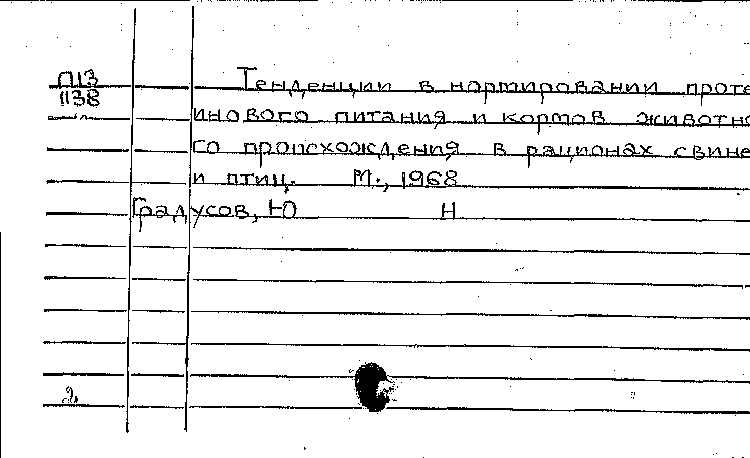 П13
1138
Тенденции в нормировании проте
инового питания и кормов животно
го происхождения в рационах свине
и птиц. М., 1968
Градусов, Ю Н
2